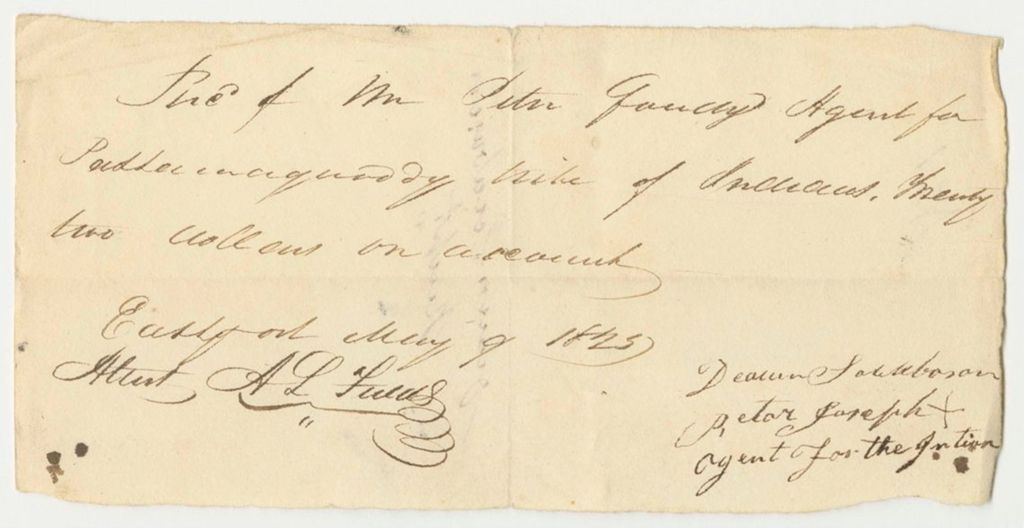 Recd of Mr Peter Goudy Agent for
Passamaquoddy tribe of Indians, Twenty
two dollars on account
Eastport May 9 1825
Attest A L
Deacun Sockbason
Petar Joseph X
agent for the Intion